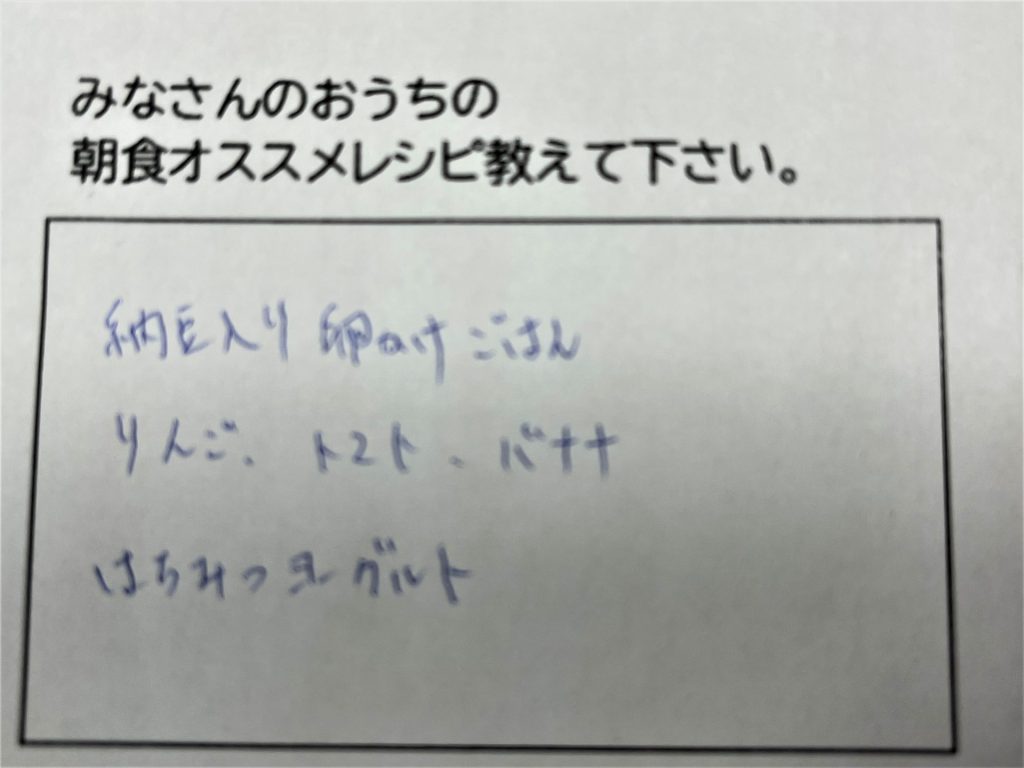 みなさんのおうちの
朝食オススメレシピ教えて下さい。
納豆入り 卵かけごはん
りんご、トマト、バナナ
はちみつヨーグルト